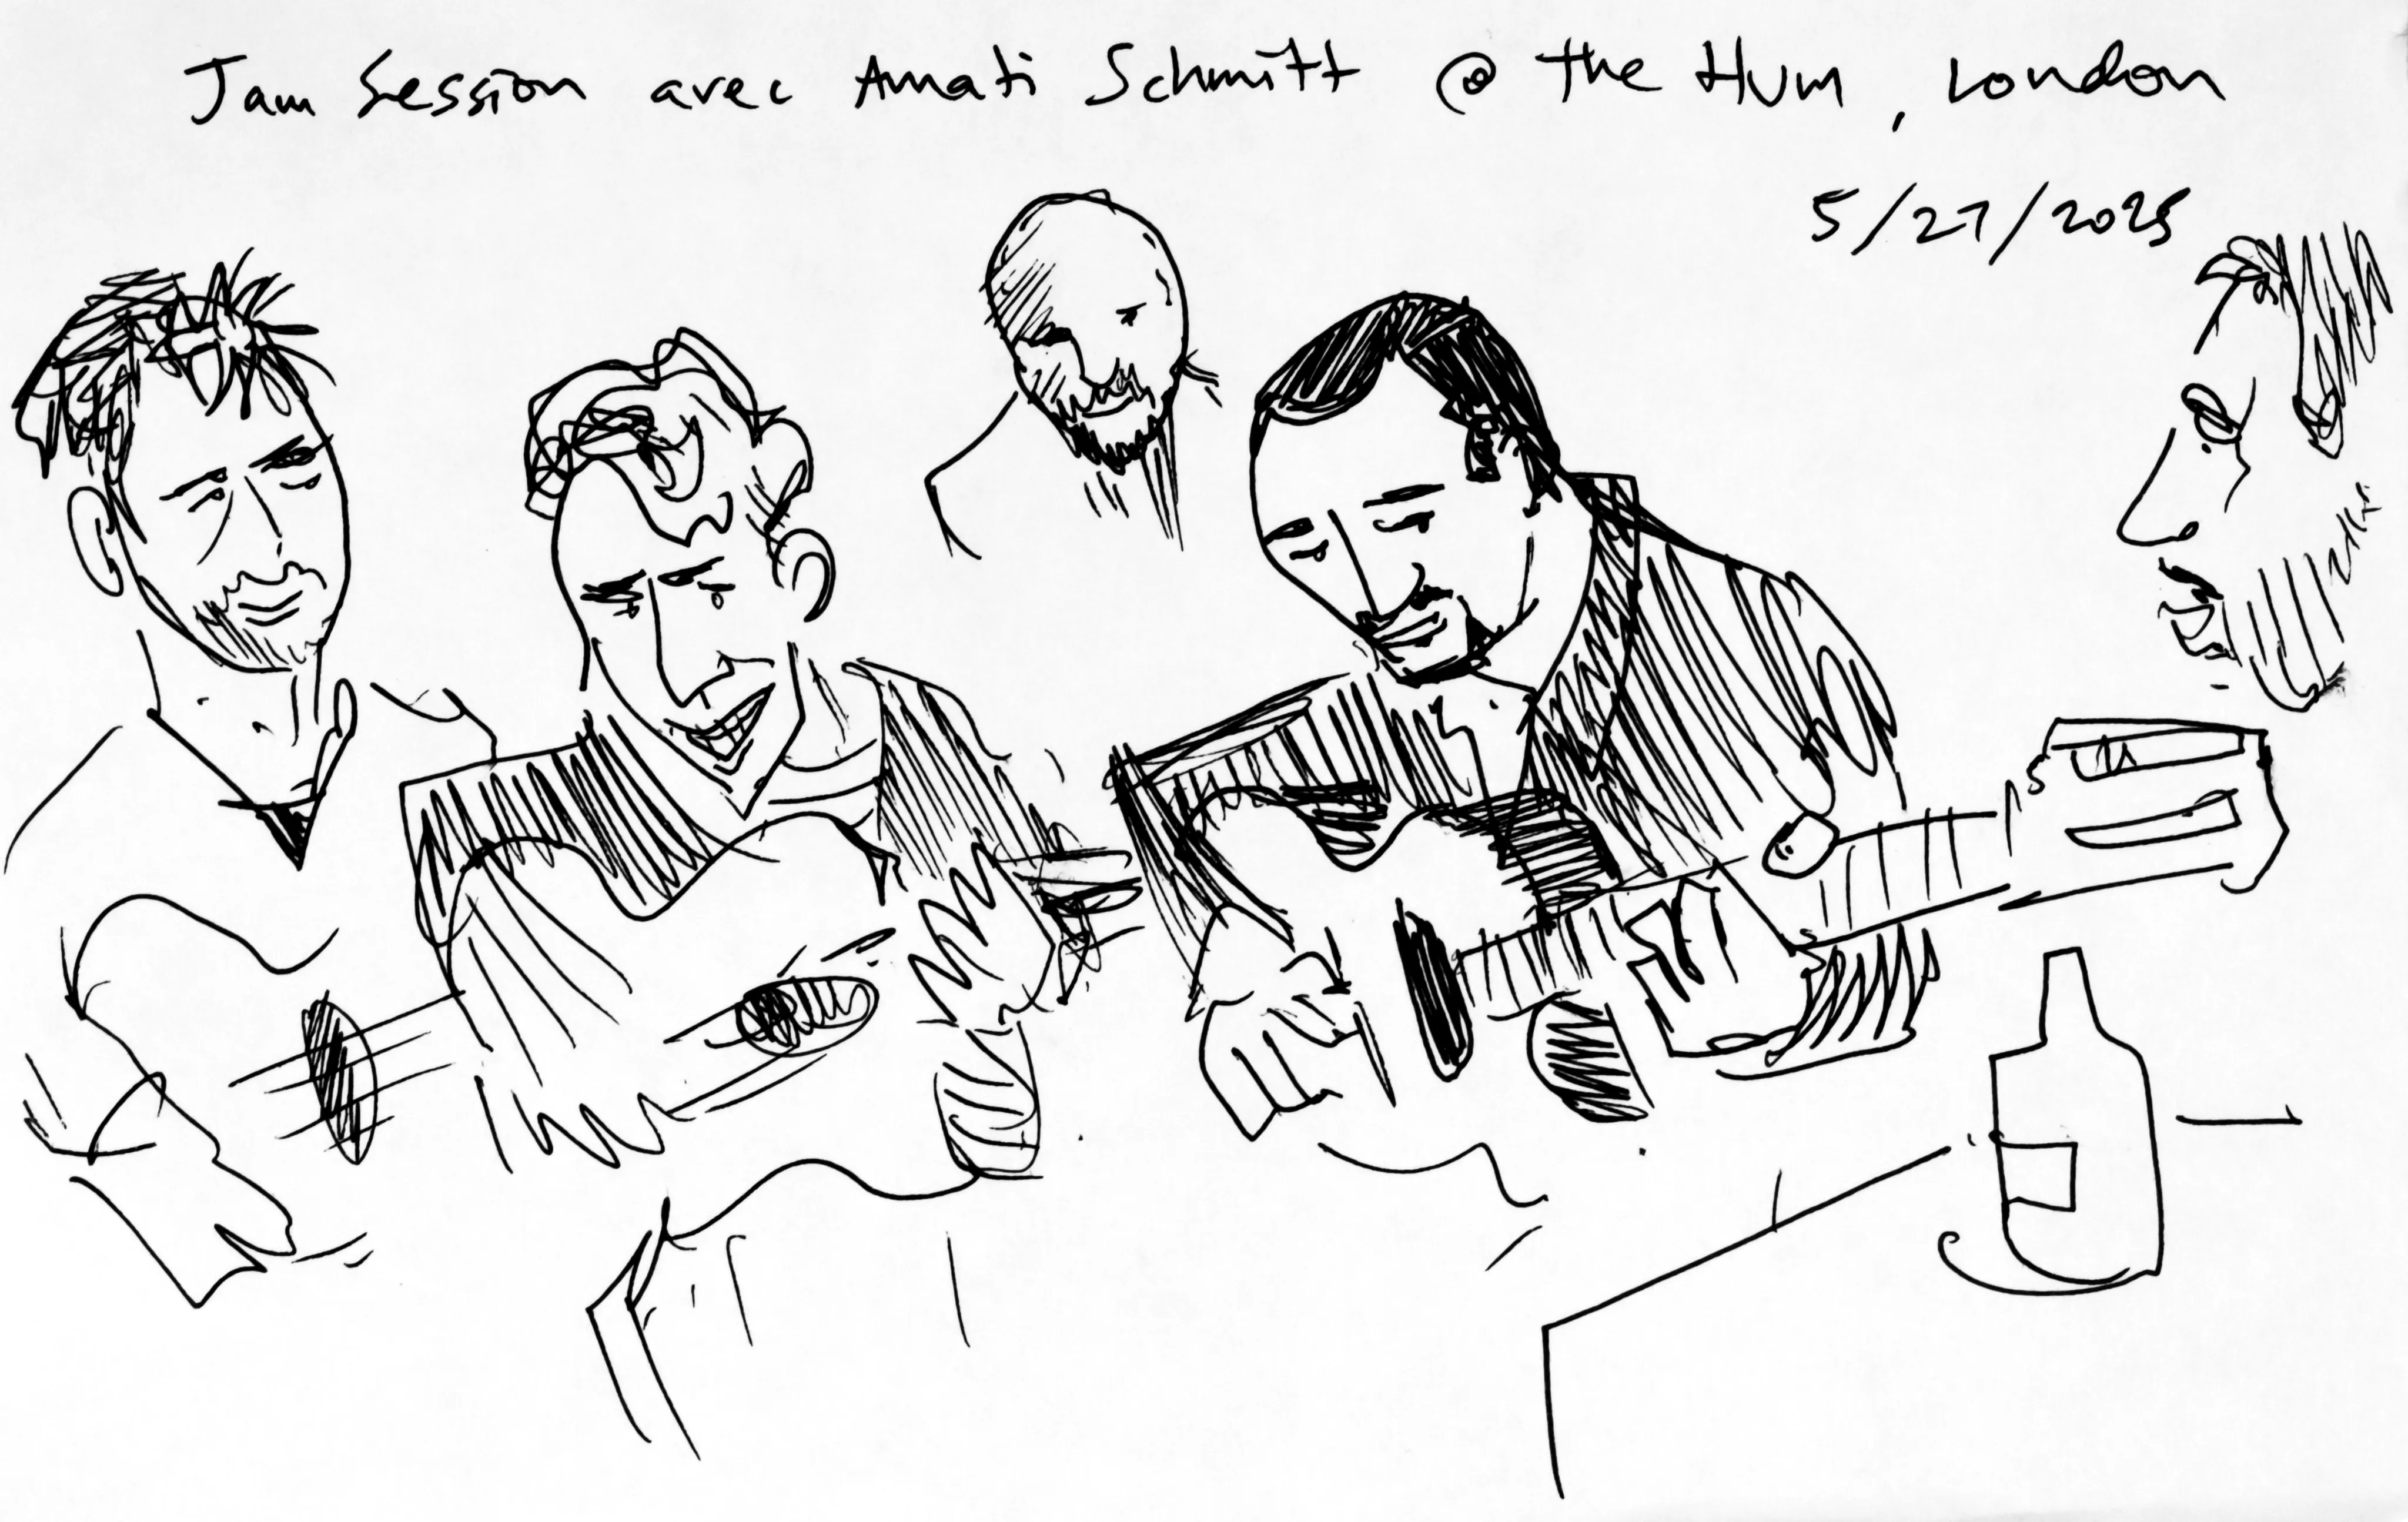 Jam Session avec Amati Schmitt @ the Hum, London
5/27/2025